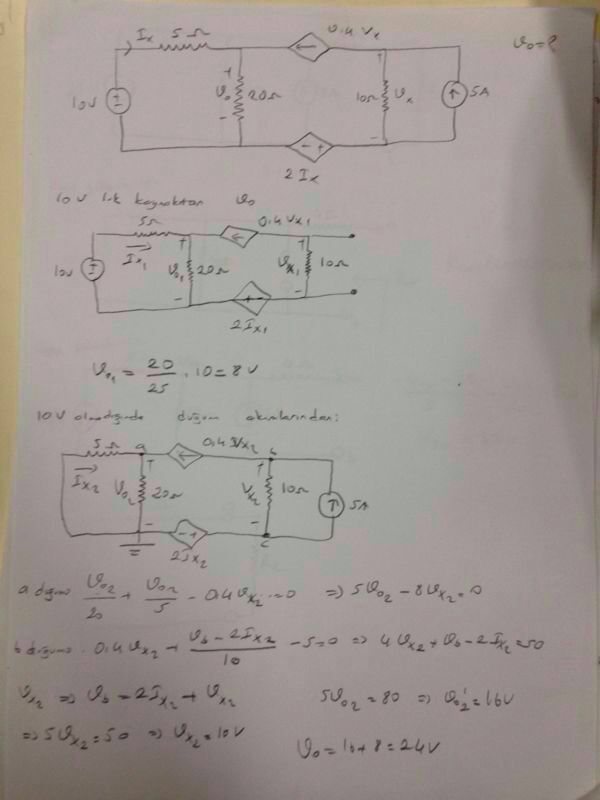 Ix 5Ω 0.4Vx
V0=?
10V + V0 - 20Ω 10Ω + Vx - 5A
- +
2Ix
10V luk kaynaktan V0
5Ω 0.4Vx1
Ix1
10V + V01 - 20Ω + Vx1 - 10Ω
2Ix1
V01 = 20/25 . 10 = 8V
10V olmadığında düğüm akımlarından:
5Ω a 0.4Vx2 b
Ix2 + V02 - 20Ω + Vx2 - 10Ω 5A
- +
2Ix2 c
a düğümü V02/20 + V02/5 - 0.4Vx2 = 0 => 5V02 - 8Vx2 = 0
b düğümü . 0.4Vx2 + (Vb - 2Ix2)/10 - 5 = 0 => 4Vx2 + Vb - 2Ix2 = 50
Vx2 => Vb = 2Ix2 + Vx2 5V02 = 80 => V02' = 16V
=> 5Vx2 = 50 => Vx2 = 10V V0 = 16 + 8 = 24V